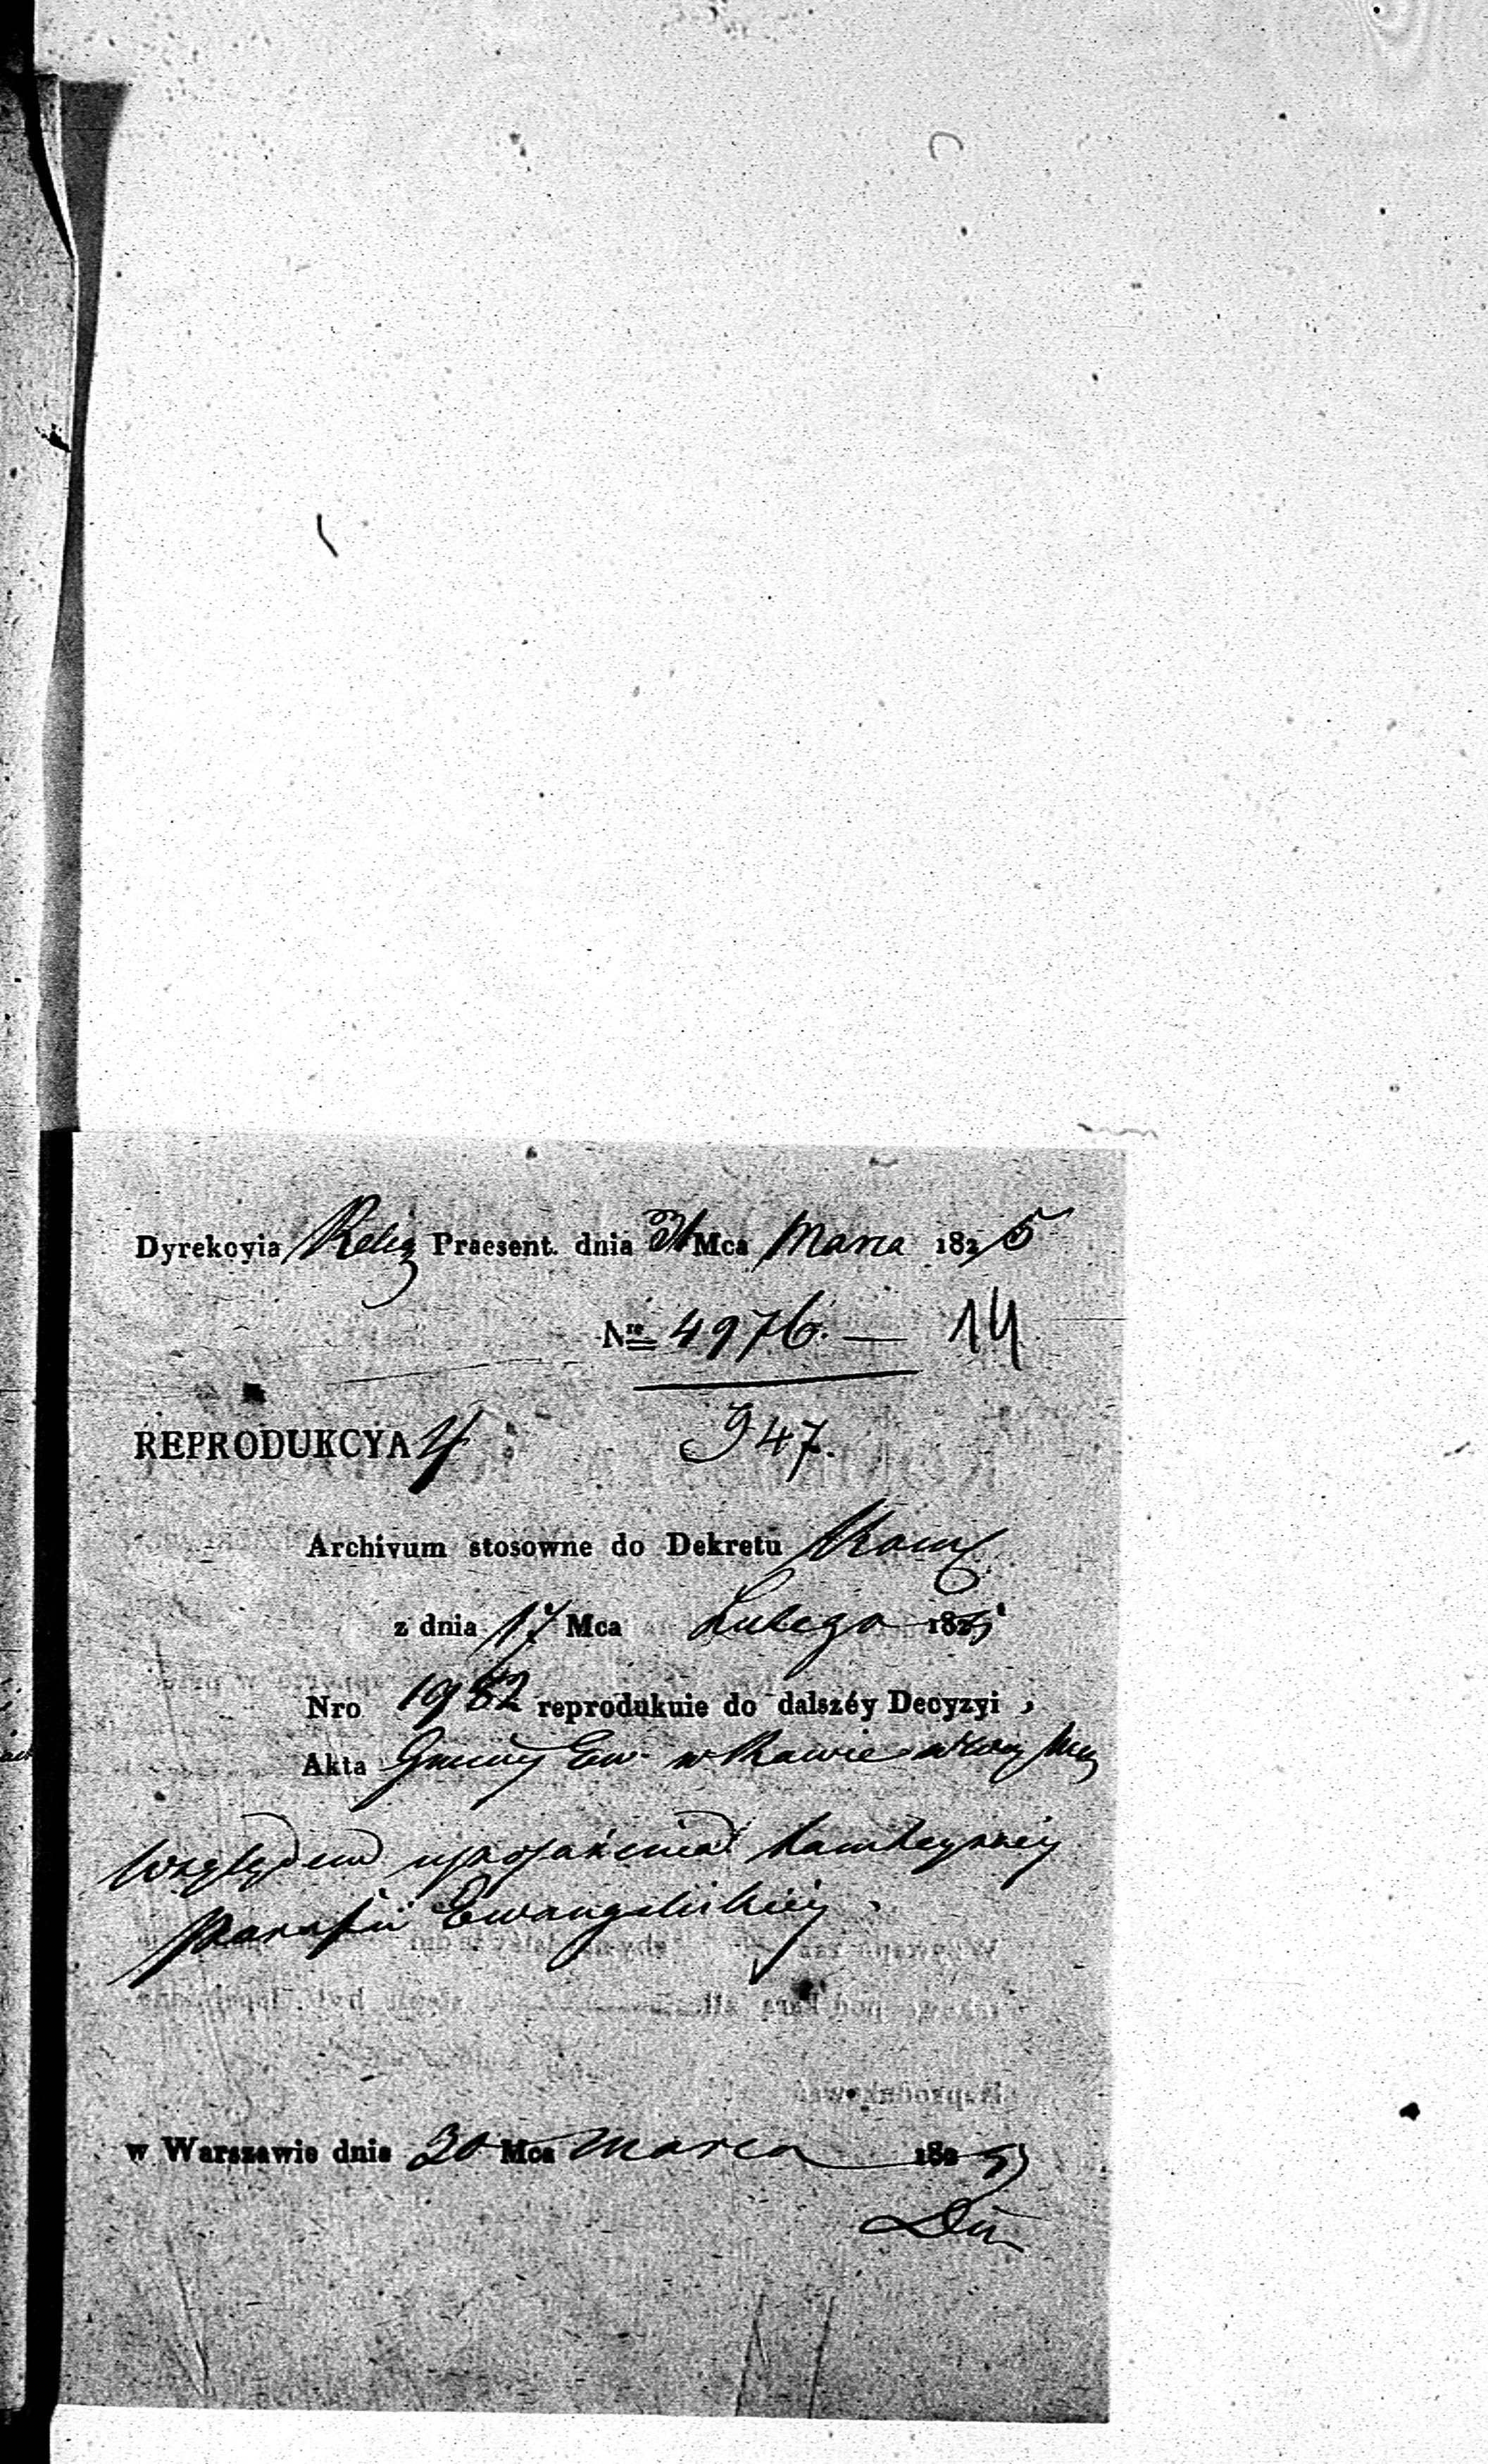 Dyrekcyia Relig Praesent. dnia 31 Mca Marca 1825
Nro 4976. — 14
947.
REPRODUKCYA 4
Archivum stosowne do Dekretu Kom
z dnia 17 Mca Lutego 1825
Nro 1982 reprodukuie do dalszéy Decyzyi ,
Akta Gminy Ew. w Rawie w Woj Maz
względem uposażenia tamteyszéy
Parafii Ewangelickiéy
w Warszawie dnia 30 Mca Marca 1825